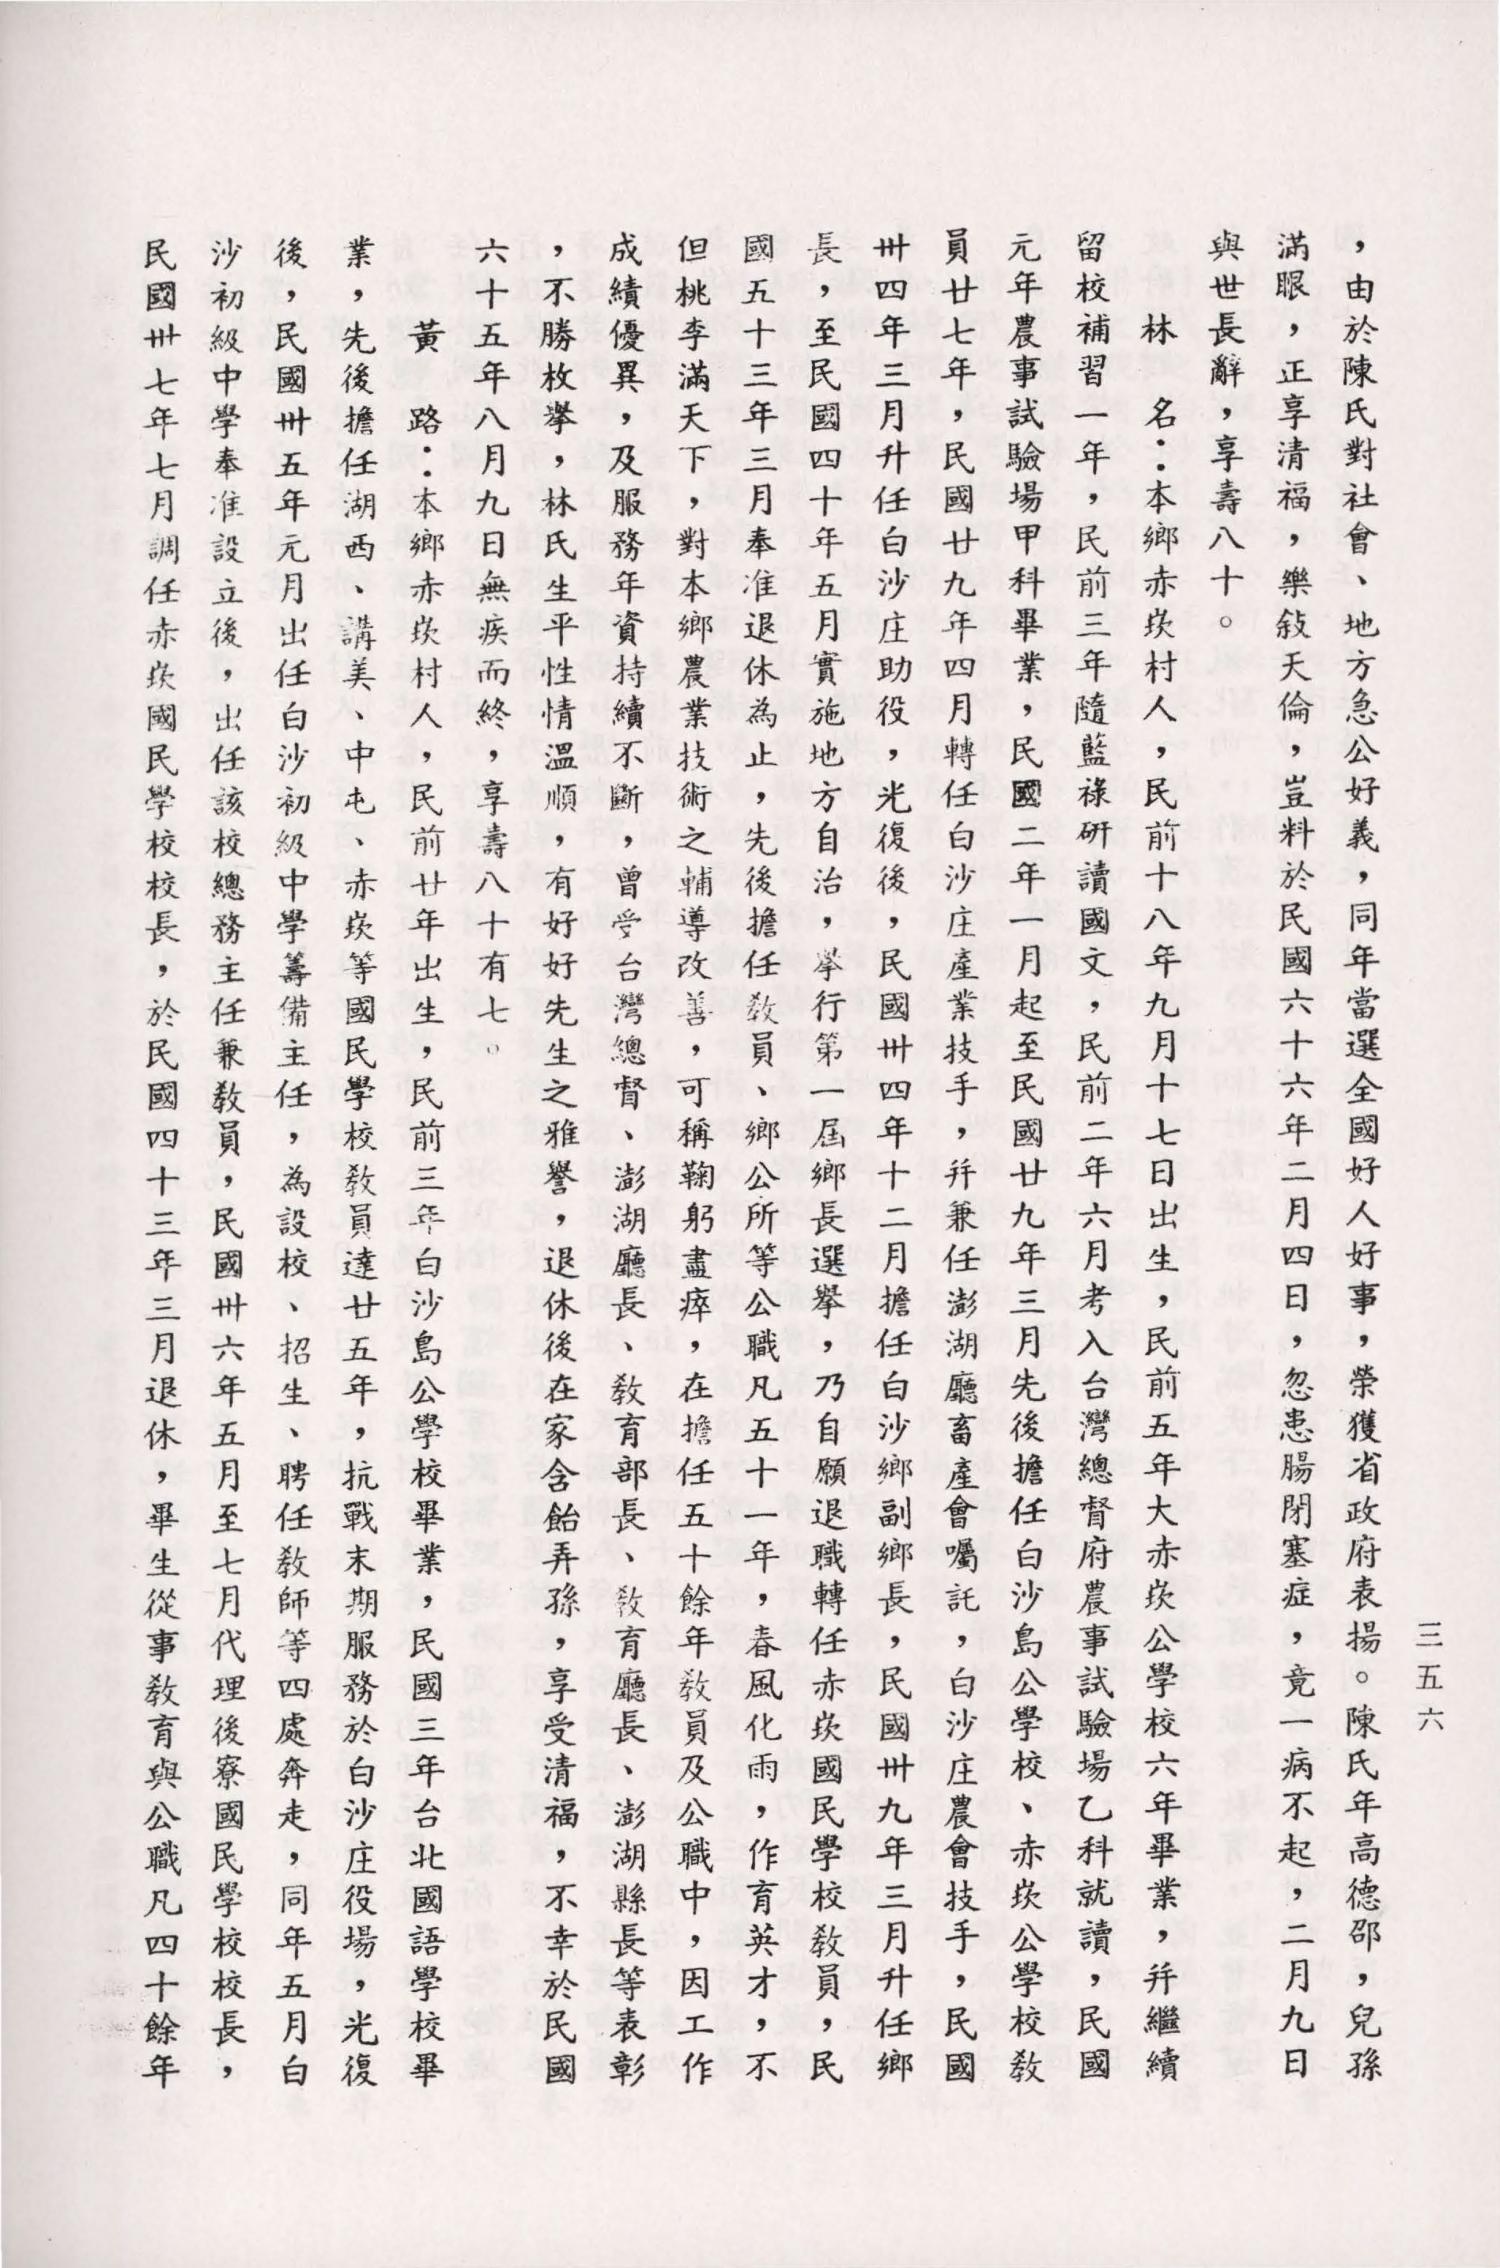 三五六
，由於陳氏對社會、地方急公好義，同年當選全國好人好事，榮獲省政府表揚。陳氏年高德邵，兒孫
滿眼，正享清福，樂敍天倫，豈料於民國六十六年二月四日，忽患腸閉塞症，竟一病不起，二月九日
與世長辭，享壽八十。
林　名：本鄉赤崁村人，民前十八年九月十七日出生，民前五年大赤崁公學校六年畢業，幷繼續
留校補習一年，民前三年隨藍祿研讀國文，民前二年六月考入台灣總督府農事試驗場乙科就讀，民國
元年農事試驗場甲科畢業，民國二年一月起至民國廿九年三月先後擔任白沙島公學校、赤崁公學校教
員廿七年，民國廿九年四月轉任白沙庄產業技手，幷兼任澎湖廳畜產會囑託，白沙庄農會技手，民國
卅四年三月升任白沙庄助役，光復後，民國卅四年十二月擔任白沙鄉副鄉長，民國卅九年三月升任鄉
長，至民國四十年五月實施地方自治，舉行第一屆鄉長選舉，乃自願退職轉任赤崁國民學校教員，民
國五十三年三月奉准退休為止，先後擔任教員、鄉公所等公職凡五十一年，春風化雨，作育英才，不
但桃李滿天下，對本鄉農業技術之輔導改善，可稱鞠躬盡瘁，在擔任五十餘年教員及公職中，因工作
成績優異，及服務年資持續不斷，曾受台灣總督、澎湖廳長、教育部長、教育廳長、澎湖縣長等表彰
，不勝枚舉，林氏生平性情溫順，有好好先生之雅譽，退休後在家含飴弄孫，享受清福，不幸於民國
六十五年八月九日無疾而終，享壽八十有七。
黃　路：本鄉赤崁村人，民前廿年出生，民前三年白沙島公學校畢業，民國三年台北國語學校畢
業，先後擔任湖西、講美、中屯、赤崁等國民學校教員達廿五年，抗戰末期服務於白沙庄役場，光復
後，民國卅五年元月出任白沙初級中學籌備主任，為設校、招生、聘任教師等四處奔走，同年五月白
沙初級中學奉准設立後，出任該校總務主任兼教員，民國卅六年五月至七月代理後寮國民學校校長，
民國卅七年七月調任赤崁國民學校校長，於民國四十三年三月退休，畢生從事教育與公職凡四十餘年